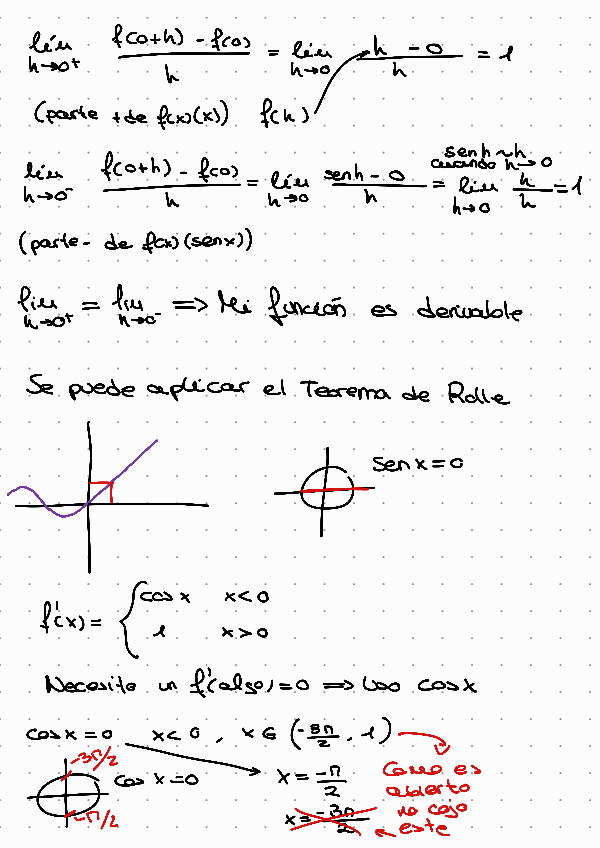 lím h→0⁺ (f(0+h) - f(0))/h = lím h→0 (h - 0)/h = 1
(parte + de f(x)(x)) f(h)
senh~h
cuando h→0
lím h→0⁻ (f(0+h) - f(0))/h = lím h→0 (senh - 0)/h = lím h→0 h/h = 1
(parte - de f(x)(senx))
lim h→0⁺ = lim h→0⁻ => Mi función es derivable
Se puede aplicar el Teorema de Rolle
sen x = 0
f'(x) = { cos x x<0
1 x>0
Necesito un f'(algo)=0 => Uso cosx
cosx = 0 x<0, x∈(-3π/2, 1)
-3π/2
cos x = 0
-π/2
x = -π/2
x = -3π/2
Como es
abierto
no cojo
este